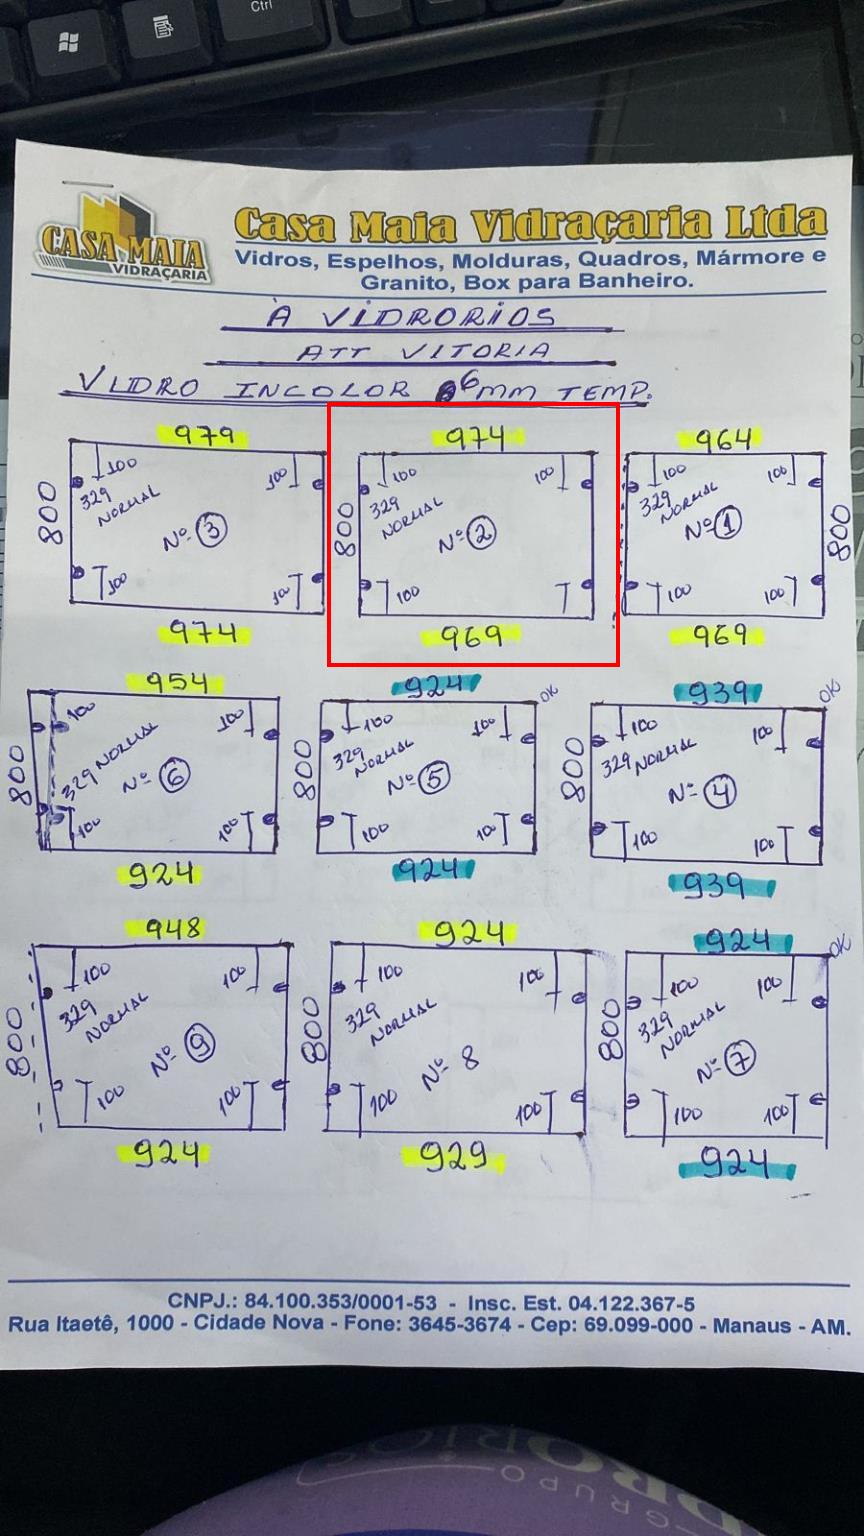 Ctrl
CASA MAIA
VIDRAÇARIA
Casa Maia Vidraçaria Ltda
Vidros, Espelhos, Molduras, Quadros, Mármore e
Granito, Box para Banheiro.
À VIDRORIOS
ATT VITORIA
VIDRO INCOLOR 6MM TEMP.
979 974 964
100 100 100 100 100 100
329 NORMAL 329 NORMAL 329 NORMAL
800 Nº 3 800 Nº 2 Nº 1 800
100 100 100 100 100
974 969 969
954 924 OK 939 OK
100 100 100 100 100 100
329 NORMAL 329 NORMAL 329 NORMAL
800 Nº 6 800 Nº 5 800 Nº 4
100 100 100 100 100 100
924 924 939
948 924 924 OK
100 100 100 100 100 100
329 NORMAL 329 NORMAL 329 NORMAL
800 Nº 9 800 Nº 8 800 Nº 7
100 100 100 100 100 100
924 929 924
CNPJ.: 84.100.353/0001-53 - Insc. Est. 04.122.367-5
Rua Itaetê, 1000 - Cidade Nova - Fone: 3645-3674 - Cep: 69.099-000 - Manaus - AM.
GRUPO